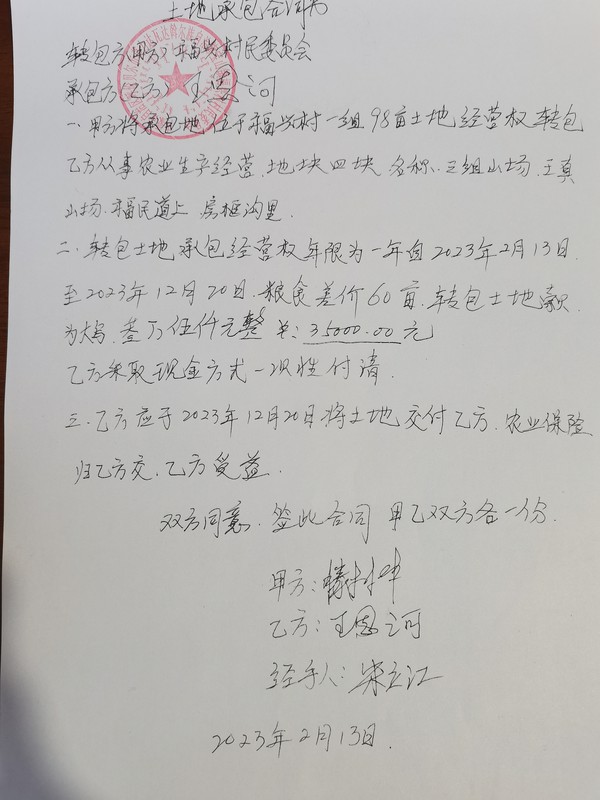 土地承包合同书
转包方(甲方):福兴村民委员会
承包方(乙方) 王恩河
一.甲方将承包地位于福兴村一组98亩土地经营权转包
乙方从事农业生产经营.地块四块 名称.三组山场.王真
山场.福民道上 房框沟里.
二.转包土地承包经营权年限为一年自2023年2月13日.
至2023年12月20日.粮食差价60亩.转包土地款
为大写.叁万伍仟元整 羊:35000.00元
乙方采取现金方式一次性付清.
三.乙方应于2023年12月20日将土地交付乙方.农业保险
归乙方交.乙方受益.
双方同意.签此合同 甲乙双方各一份.
甲方:
乙方:王恩河
经手人:宋立江
2023年2月13日.